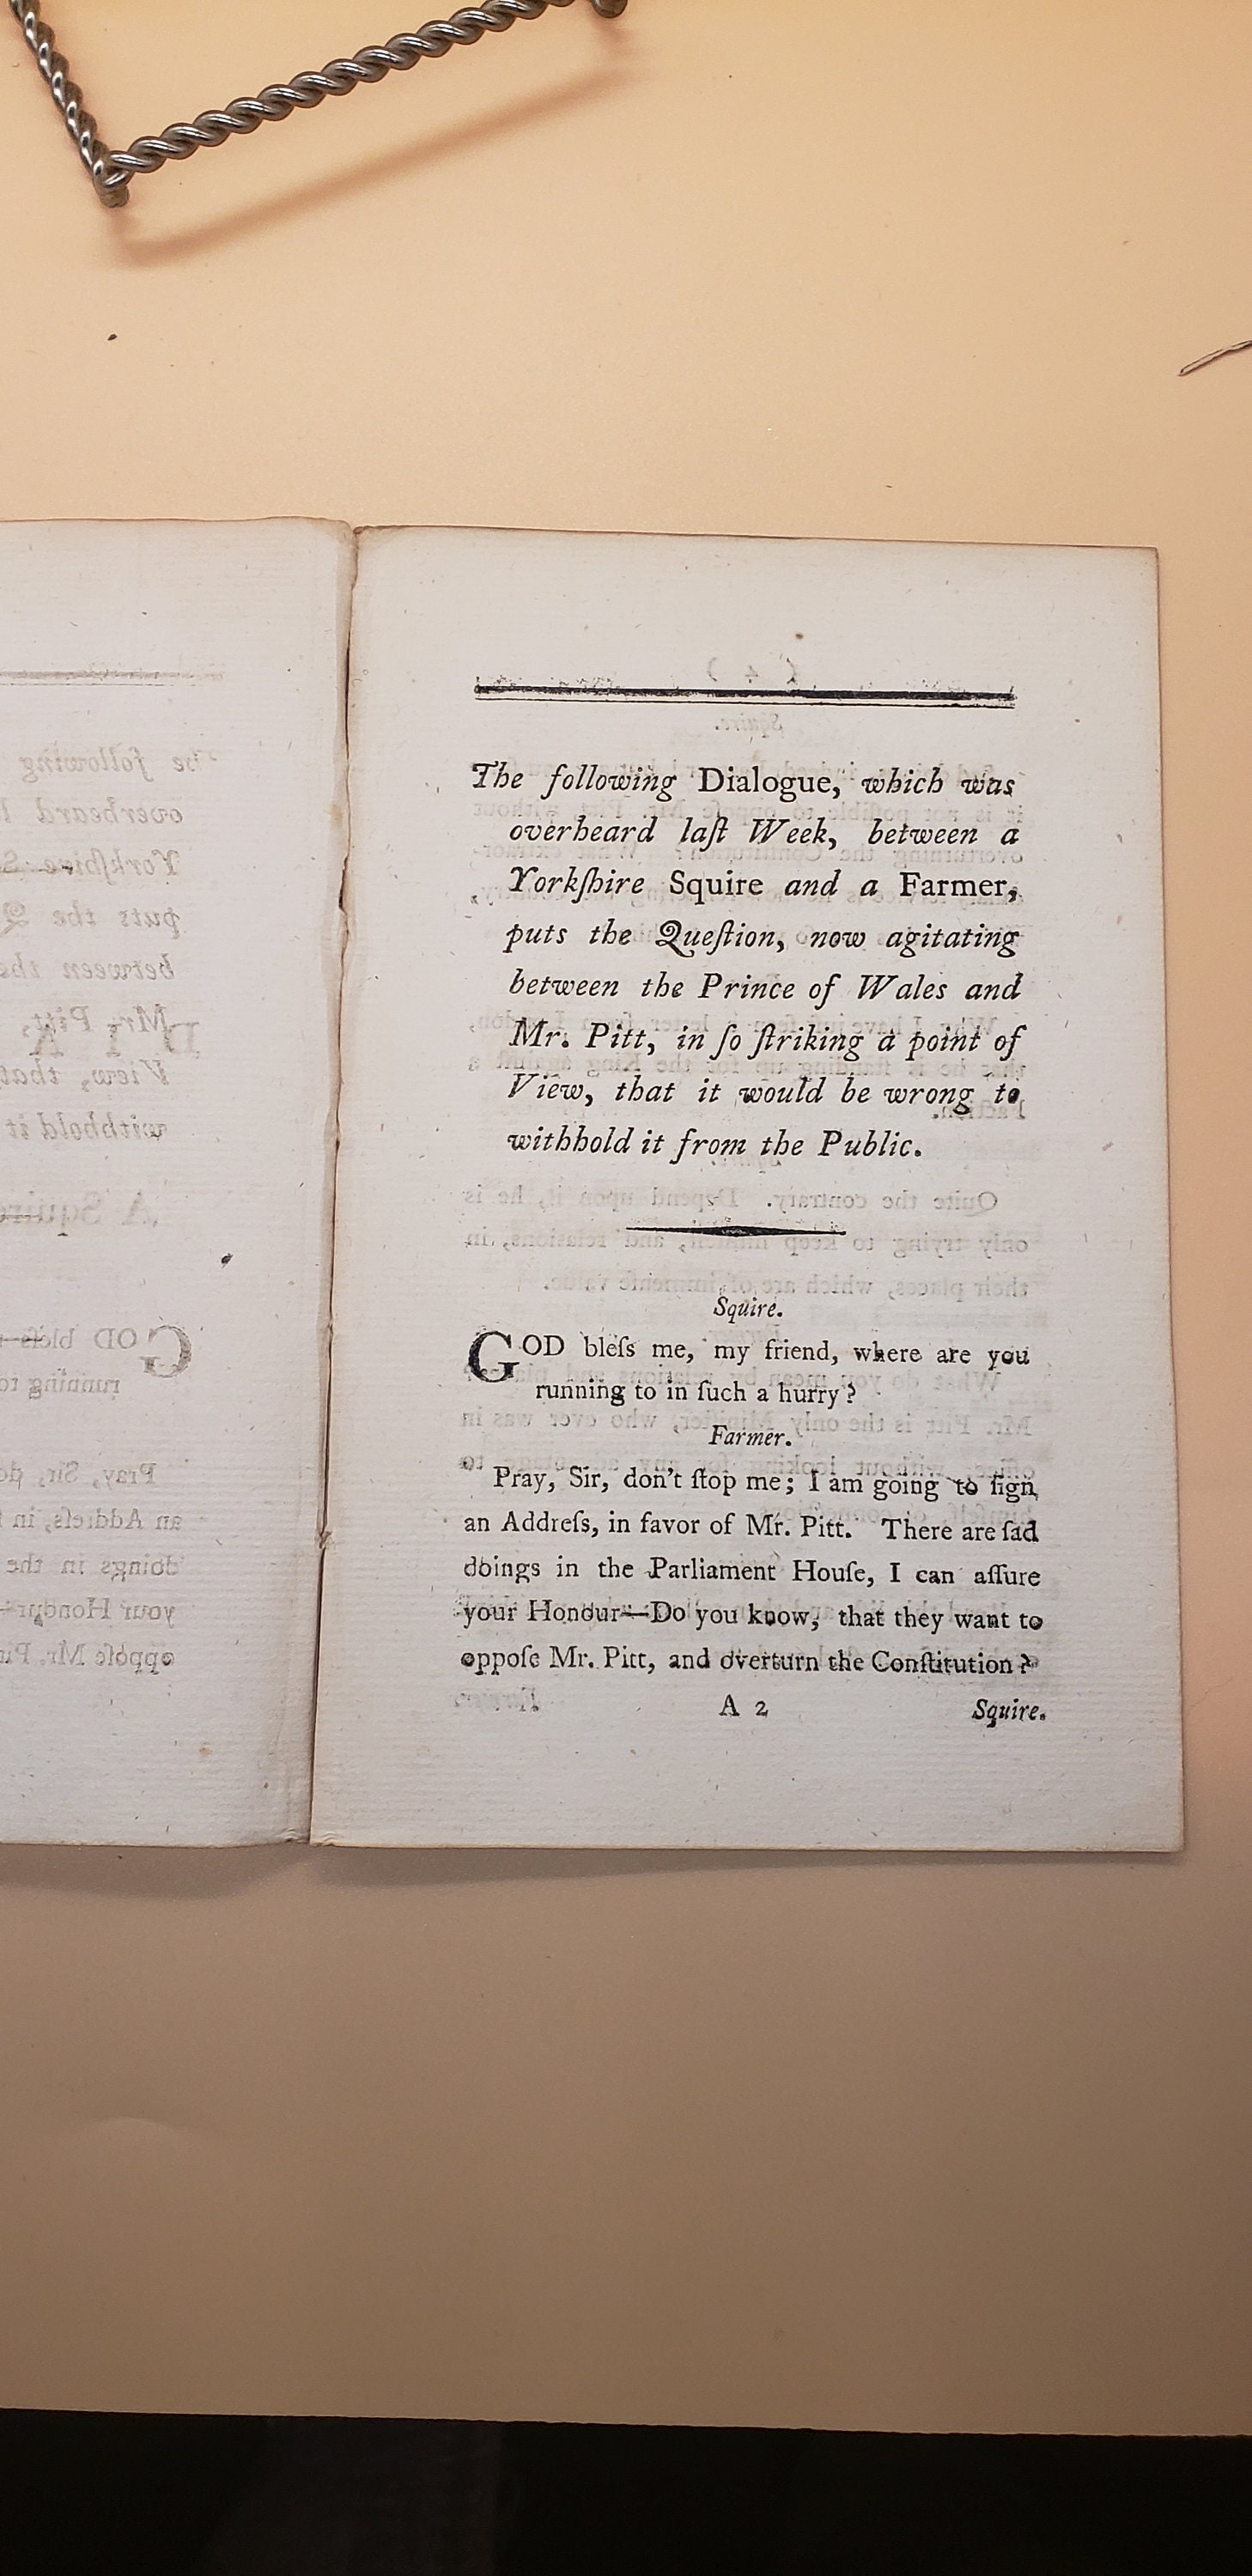 The following Dialogue, which was
overheard laſt Week, between a
Yorkſhire Squire and a Farmer,
puts the Queſtion, now agitating
between the Prince of Wales and
Mr. Pitt, in ſo ſtriking a point of
View, that it would be wrong to
withhold it from the Public.
Squire.
GOD bleſs me, my friend, where are you
running to in ſuch a hurry?
Farmer.
Pray, Sir, don't ſtop me; I am going to ſign
an Addreſs, in favor of Mr. Pitt. There are ſad
doings in the Parliament Houſe, I can aſſure
your Honour—Do you know, that they want to
oppoſe Mr. Pitt, and overturn the Conſtitution?
A 2 Squire.